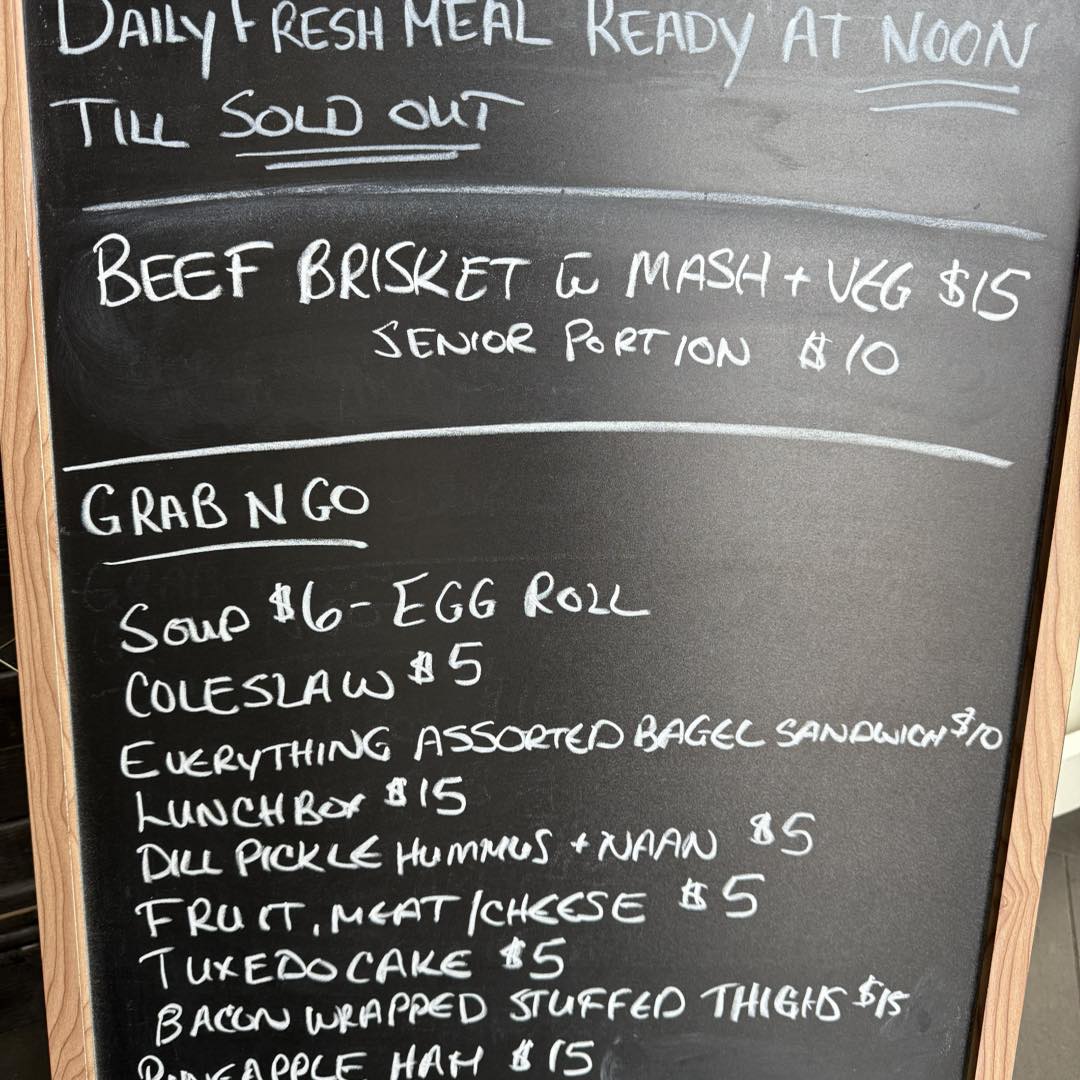 DAILY FRESH MEAL READY AT NOON
TILL SOLD OUT
BEEF BRISKET W MASH + VEG $15
SENIOR PORTION $10
GRAB N GO
SOUP $6 - EGG ROLL
COLESLAW $5
EVERYTHING ASSORTED BAGEL SANDWICH $10
LUNCH BOX $15
DILL PICKLE HUMMUS + NAAN $5
FRUIT, MEAT/CHEESE $5
TUXEDO CAKE $5
BACON WRAPPED STUFFED THIGHS $15
PINEAPPLE HAM $15